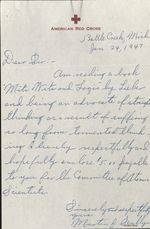 AMERICAN RED CROSS
Battle Creek, Mich
Jan. 24, 1947
Dear Sir -
Am reading a book
Mits Wits and Logic by Lieber
and being an advocate of straight
thinking as a result of suffering
so long from tormented think-
ing I hereby respectfully and
hopefully enclose $5.00 payable
to you for the Committee of Atomic
Scientists.
Sincerely and respectfully
yours
Martin J.